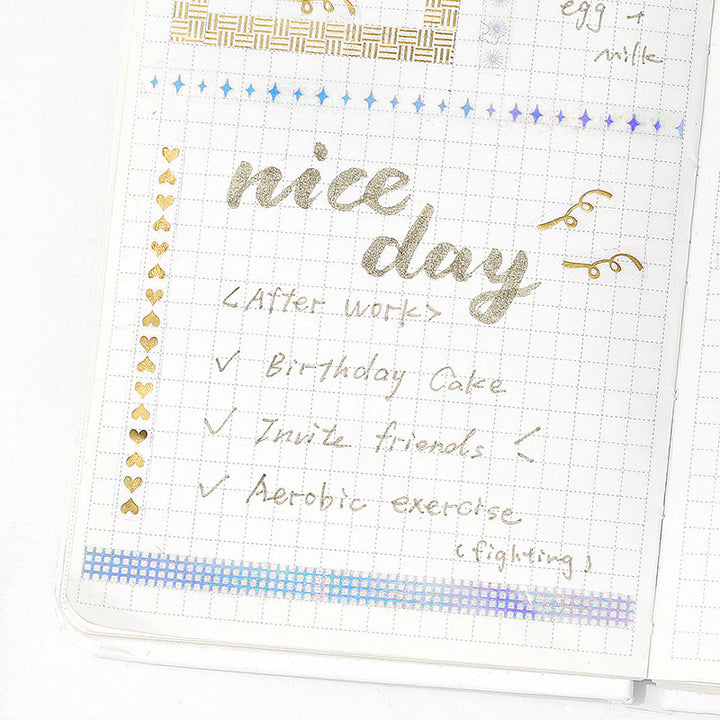 egg +
milk
nice
day
<After work>
✓ Birthday Cake
✓ Invite friends <
✓ Aerobic exercise
(fighting)